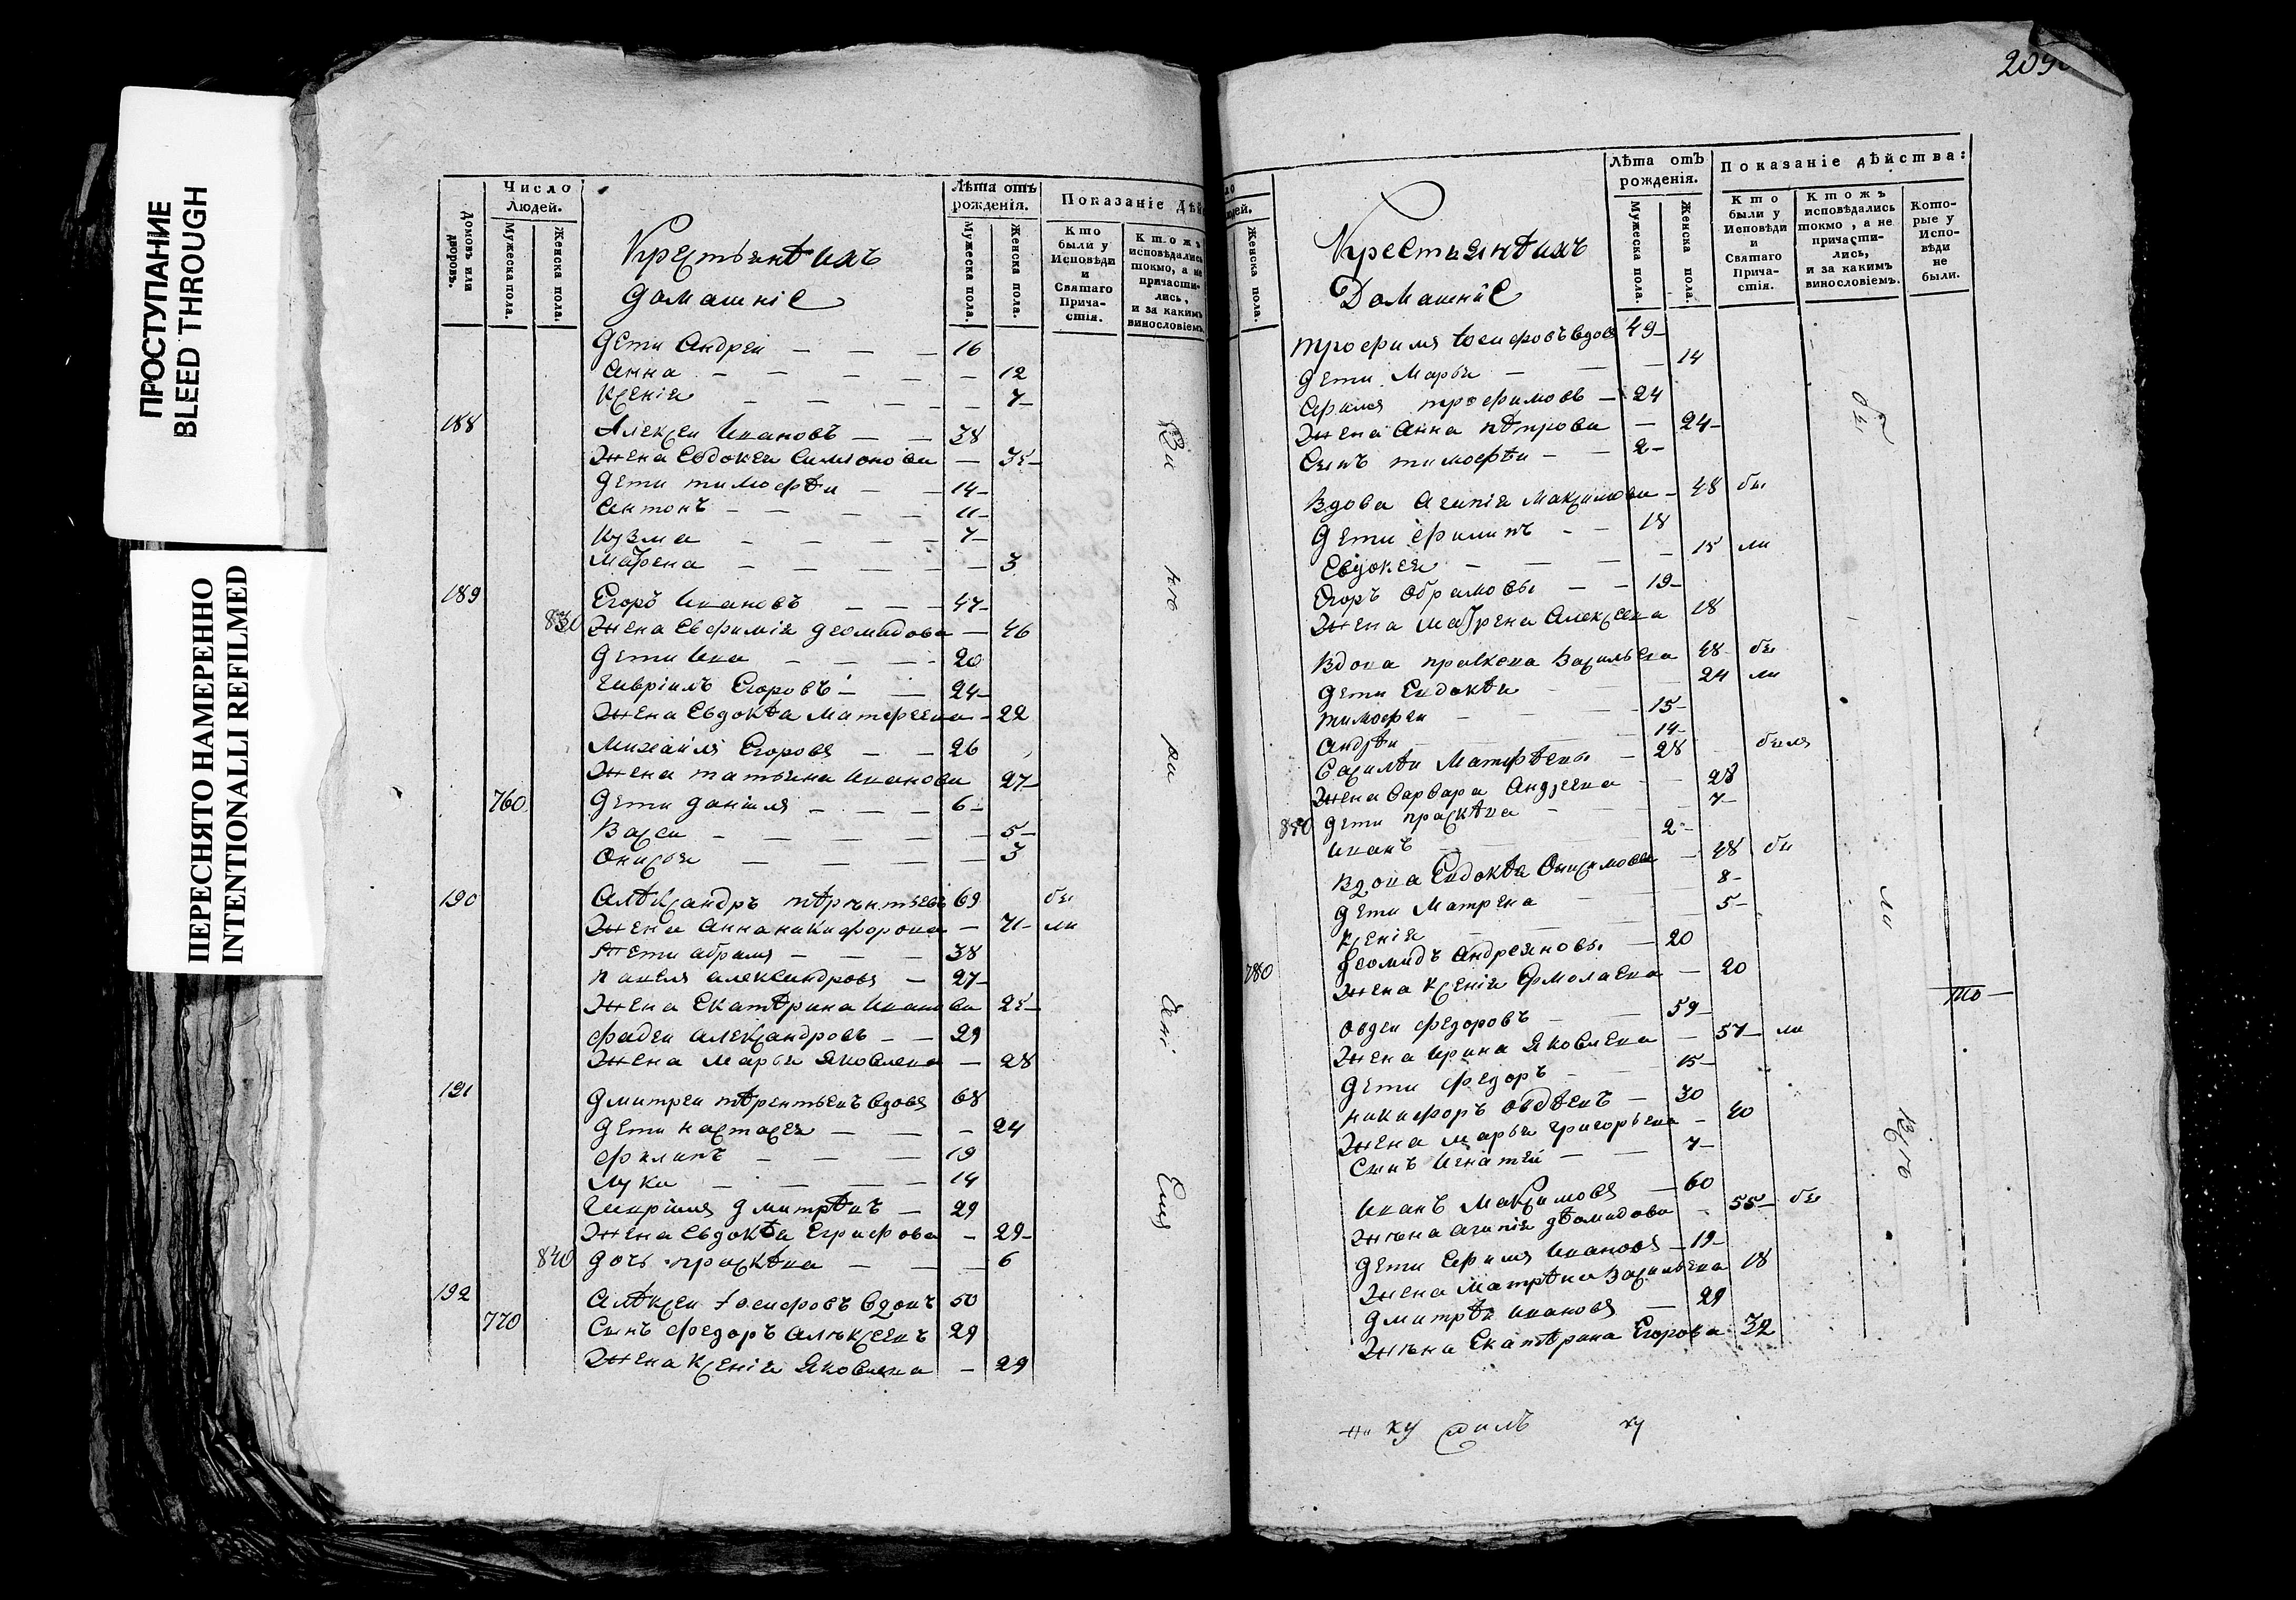 ПРОСТУПАНИЕ
BLEED THROUGH
ПЕРЕСНЯТО НАМЕРЕННО
INTENTIONALLI REFILMED
Домовъ или дворовъ.
Число Людей.
Мужеска пола.
Женска пола.
Крестьянѣ ихъ
домашніе
Лѣта отъ рожденія.
Мужеска пола.
Женска пола.
Показаніе Дѣй
Кто были у Исповѣди и Святаго Причастія.
Ктожъ исповѣдались токмо, а не причастились, и за какимъ винословіемъ
Дети Андреи — — — 16
Анна — — — — — 12
Ксенія — — — — 7
188 Алексеи Ивановъ — — 38
Жена Евдокея Симионова — 35
Дети тимофѣи — — 14
Антонъ — — — — 11
Кузма — — — — 7
Матрена — — — — — 3
189 Егоръ Ивановъ — — — 47
830 Жена Евфимія деомидова — 46
Дети Ива — — — 20
Гаврилъ Егоровъ — — 24
Жена Евдокѣа Матфеева — 22
Михаилъ Егоровъ — — 26
Жена татьяна Иванова 27
760 Дети данила — — — 6
Васси — — — — — 5
Онисья — — — — — 3
190 Алѣксандръ тѣрѣнтьевъ 69 бы
Жена Анна никифорова — 71 ли
Дети абрамъ — — — 38
павелъ александровъ — 27
Жена Екатѣрина Иванова 25
фадеи александровъ — — 29
Жена Марья Яковлева — 28
191 Дмитреи тѣрентьевъ вдовъ 68
Дети настасея — — — 24
филипъ — — — 19
Лука — — — — 14
Гаврила дмитрѣвъ — 29
Жена Евдокѣа Евграфова — 29
840 дочь праскѣва — — — 6
192 Алѣксеи Iосифовъ вдовъ 50
770 Сынъ федоръ алѣксеевъ 29
Жена Ксенія Яковлева — 29
209
Женска пола.
Крестьянѣ ихъ
Домашніе
Лѣта отъ рожденія.
Мужеска пола.
Женска пола.
Показаніе дѣйства:
Кто были у Исповѣди и Святаго Причастія.
Ктожъ исповѣдались токмо, а не причастились, и за какимъ винословіемъ.
Которые у Исповѣди не были.
трофимъ Iосифовъ вдовъ 49
Дети Марья — — — 14
Ефимъ трофимовъ — 24
Жена Анна пѣтрова — 24
Сынъ тимофѣи — — 2
Вдова Агапія Максимова — 48 бы
Дети филипъ — — 18
Евдокея — — — — 15 ли
Егоръ Обрамовъ — — 19
Жена Матрена Алексева 18
Вдова праскева Васильева 48 бы
Дети Евдокѣа 24 ли
тимофеи — — — 15
Андрѣи 14
Василѣи Матфѣевъ — 28 была
Жена варвара Андреева — 28
850 Дети праскѣва — — 7
Иванъ 2
Вдова Евдокѣа Онисимова — 48 бы
Дети Матрена — — 8
Ксенія — — 5
780 деомидъ Андреяновъ — 20
Жена Ксенія Ермолаева — 20
Овдеи федоровъ — — 59
Жена Ирина Яковлева — 57 ли
Дети федоръ — — 15
никифоръ овдѣевъ — 30
Жена Марья григорьева — 40
Сынъ Игнатеи — — 7
Иванъ Максимовъ — 60
Жѣна агапія дѣомидова — 55 бы
Дети Ефимъ Ивановъ — 19
Жена Матрѣна Васильева 18
Дмитрѣи Ивановъ — 29
Жѣна Екатѣрина Егорова 32